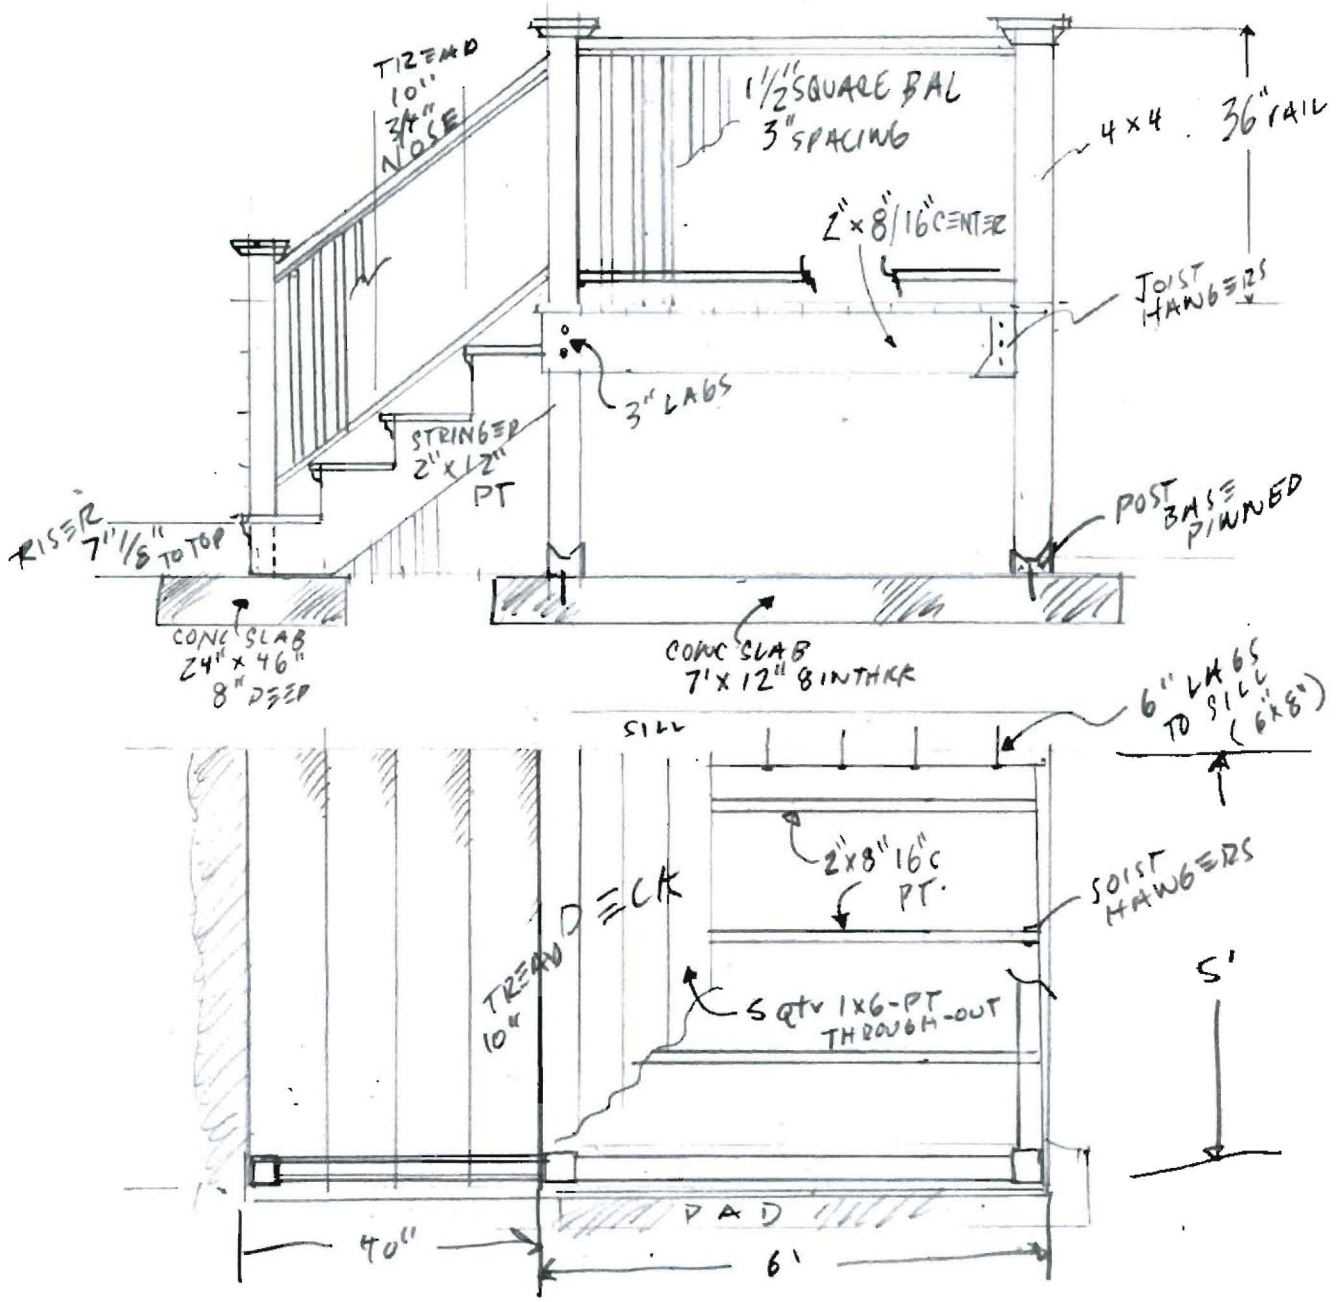 TREAD
10"
3/4"
NOSE
1 1/2" SQUARE BAL
3" SPACING
4 x 4
36" RAIL
2" x 8"/16" CENTER
JOIST
HANGERS
3" LAGS
STRINGER
2" x 12"
PT
RISER
7" 1/8" TO TOP
POST
BASE
PINNED
CONC SLAB
24" x 46"
8" DEEP
CONC SLAB
7' x 12" 8 IN THICK
SILL
6" LAGS
TO SILL
(6x8")
2"x8" 16"C
PT.
JOIST
HANGERS
DECK
TREAD
10"
5 Qtr 1x6-PT
THROUGH-OUT
5'
PAD
40"
6'